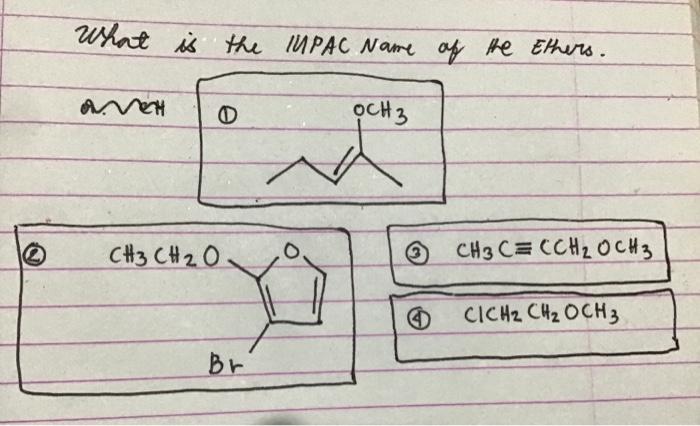 What is the IUPAC Name of the Ethers.
① OCH3
② CH3 CH2 O O
Br
③ CH3 C≡CCH2 OCH3
④ ClCH2 CH2 OCH3